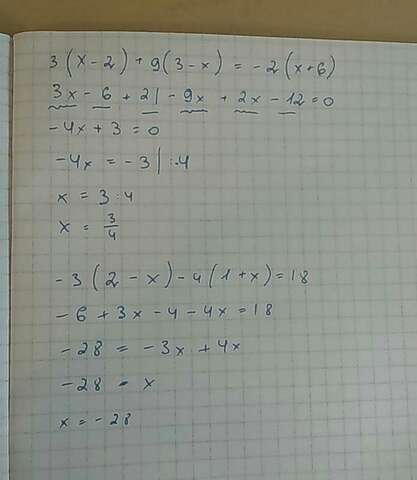 3(x-2) + 9(3-x) = -2(x+6)
3x - 6 + 21 - 9x + 2x - 12 = 0
-4x + 3 = 0
-4x = -3 | :4
x = 3 : 4
x = 3/4
-3(2-x) - 4(1+x) = 18
-6 + 3x - 4 - 4x = 18
-28 = -3x + 4x
-28 = x
x = -28